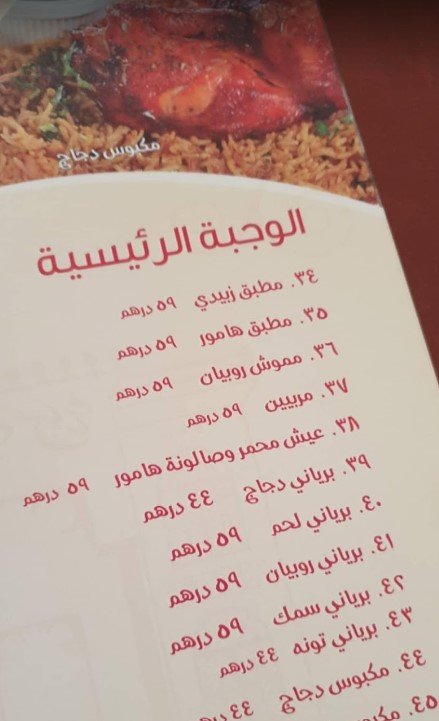 مكبوس دجاج
الوجبة الرئيسية
٣٤. مطبق زبيدي ٥٩ درهم
٣٥. مطبق هامور ٥٩ درهم
٣٦. مموش روبيان ٥٩ درهم
٣٧. مربيين ٥٩ درهم
٣٨. عيش محمر وصالونة هامور ٥٩ درهم
٣٩. برياني دجاج ٤٤ درهم
٤٠. برياني لحم ٥٩ درهم
٤١. برياني روبيان ٥٩ درهم
٤٢. برياني سمك ٥٩ درهم
٤٣. برياني تونه ٤٤ درهم
٤٤. مكبوس دجاج ٤٤
٤٥.